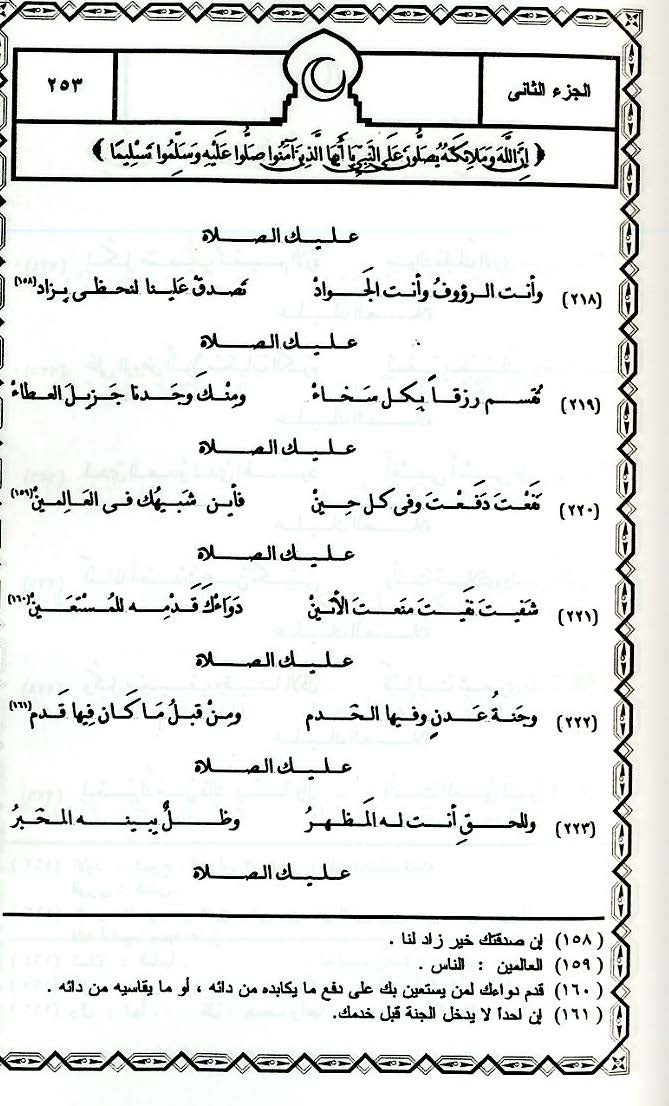 الجزء الثانى
٢٥٣
﴿ إِنَّ اللَّهَ وَمَلَائِكَتَهُ يُصَلُّونَ عَلَى النَّبِيِّ يَا أَيُّهَا الَّذِينَ آمَنُوا صَلُّوا عَلَيْهِ وَسَلِّمُوا تَسْلِيمًا ﴾
عليك الصلاة
(٢١٨) وأنت الرؤوفُ وأنت الجَوادْ تصدقْ عَلينا لنحظى بِزاد(١٥٨)
عليك الصلاة
(٢١٩) تُقسم رزقاً بِكل سَخاءْ ومِنْكَ وجَدنا جَزيلَ العطاءْ
عليك الصلاة
(٢٢٠) نَفَعْتَ دَفَعْتَ وفى كل حِينْ فأين شَبيهُك فى العَالمِينْ(١٥٩)
عليك الصلاة
(٢٢١) شفيتَ نفَيتَ منَعتَ الأنينْ دَوَاءَكَ قَدِّمِه للمُسْتعَينْ(١٦٠)
عليك الصلاة
(٢٢٢) وجَنةُ عَدنٍ وفيها الخَدم ومِنْ قبلُ مَا كَان فِيها قَدم(١٦١)
عليك الصلاة
(٢٢٣) وللحقِ أنت له المَظهرُ وظلٌ يبينه المخبَرُ
عليك الصلاة
(١٥٨) إن صدقتك خير زاد لنا .
(١٥٩) العالمين : الناس .
(١٦٠) قدم دواءك لمن يستعين بك على دفع ما يكابده من دائه ، أو ما يقاسيه من دائه .
(١٦١) إن احداً لا يدخل الجنة قبل خدمك.